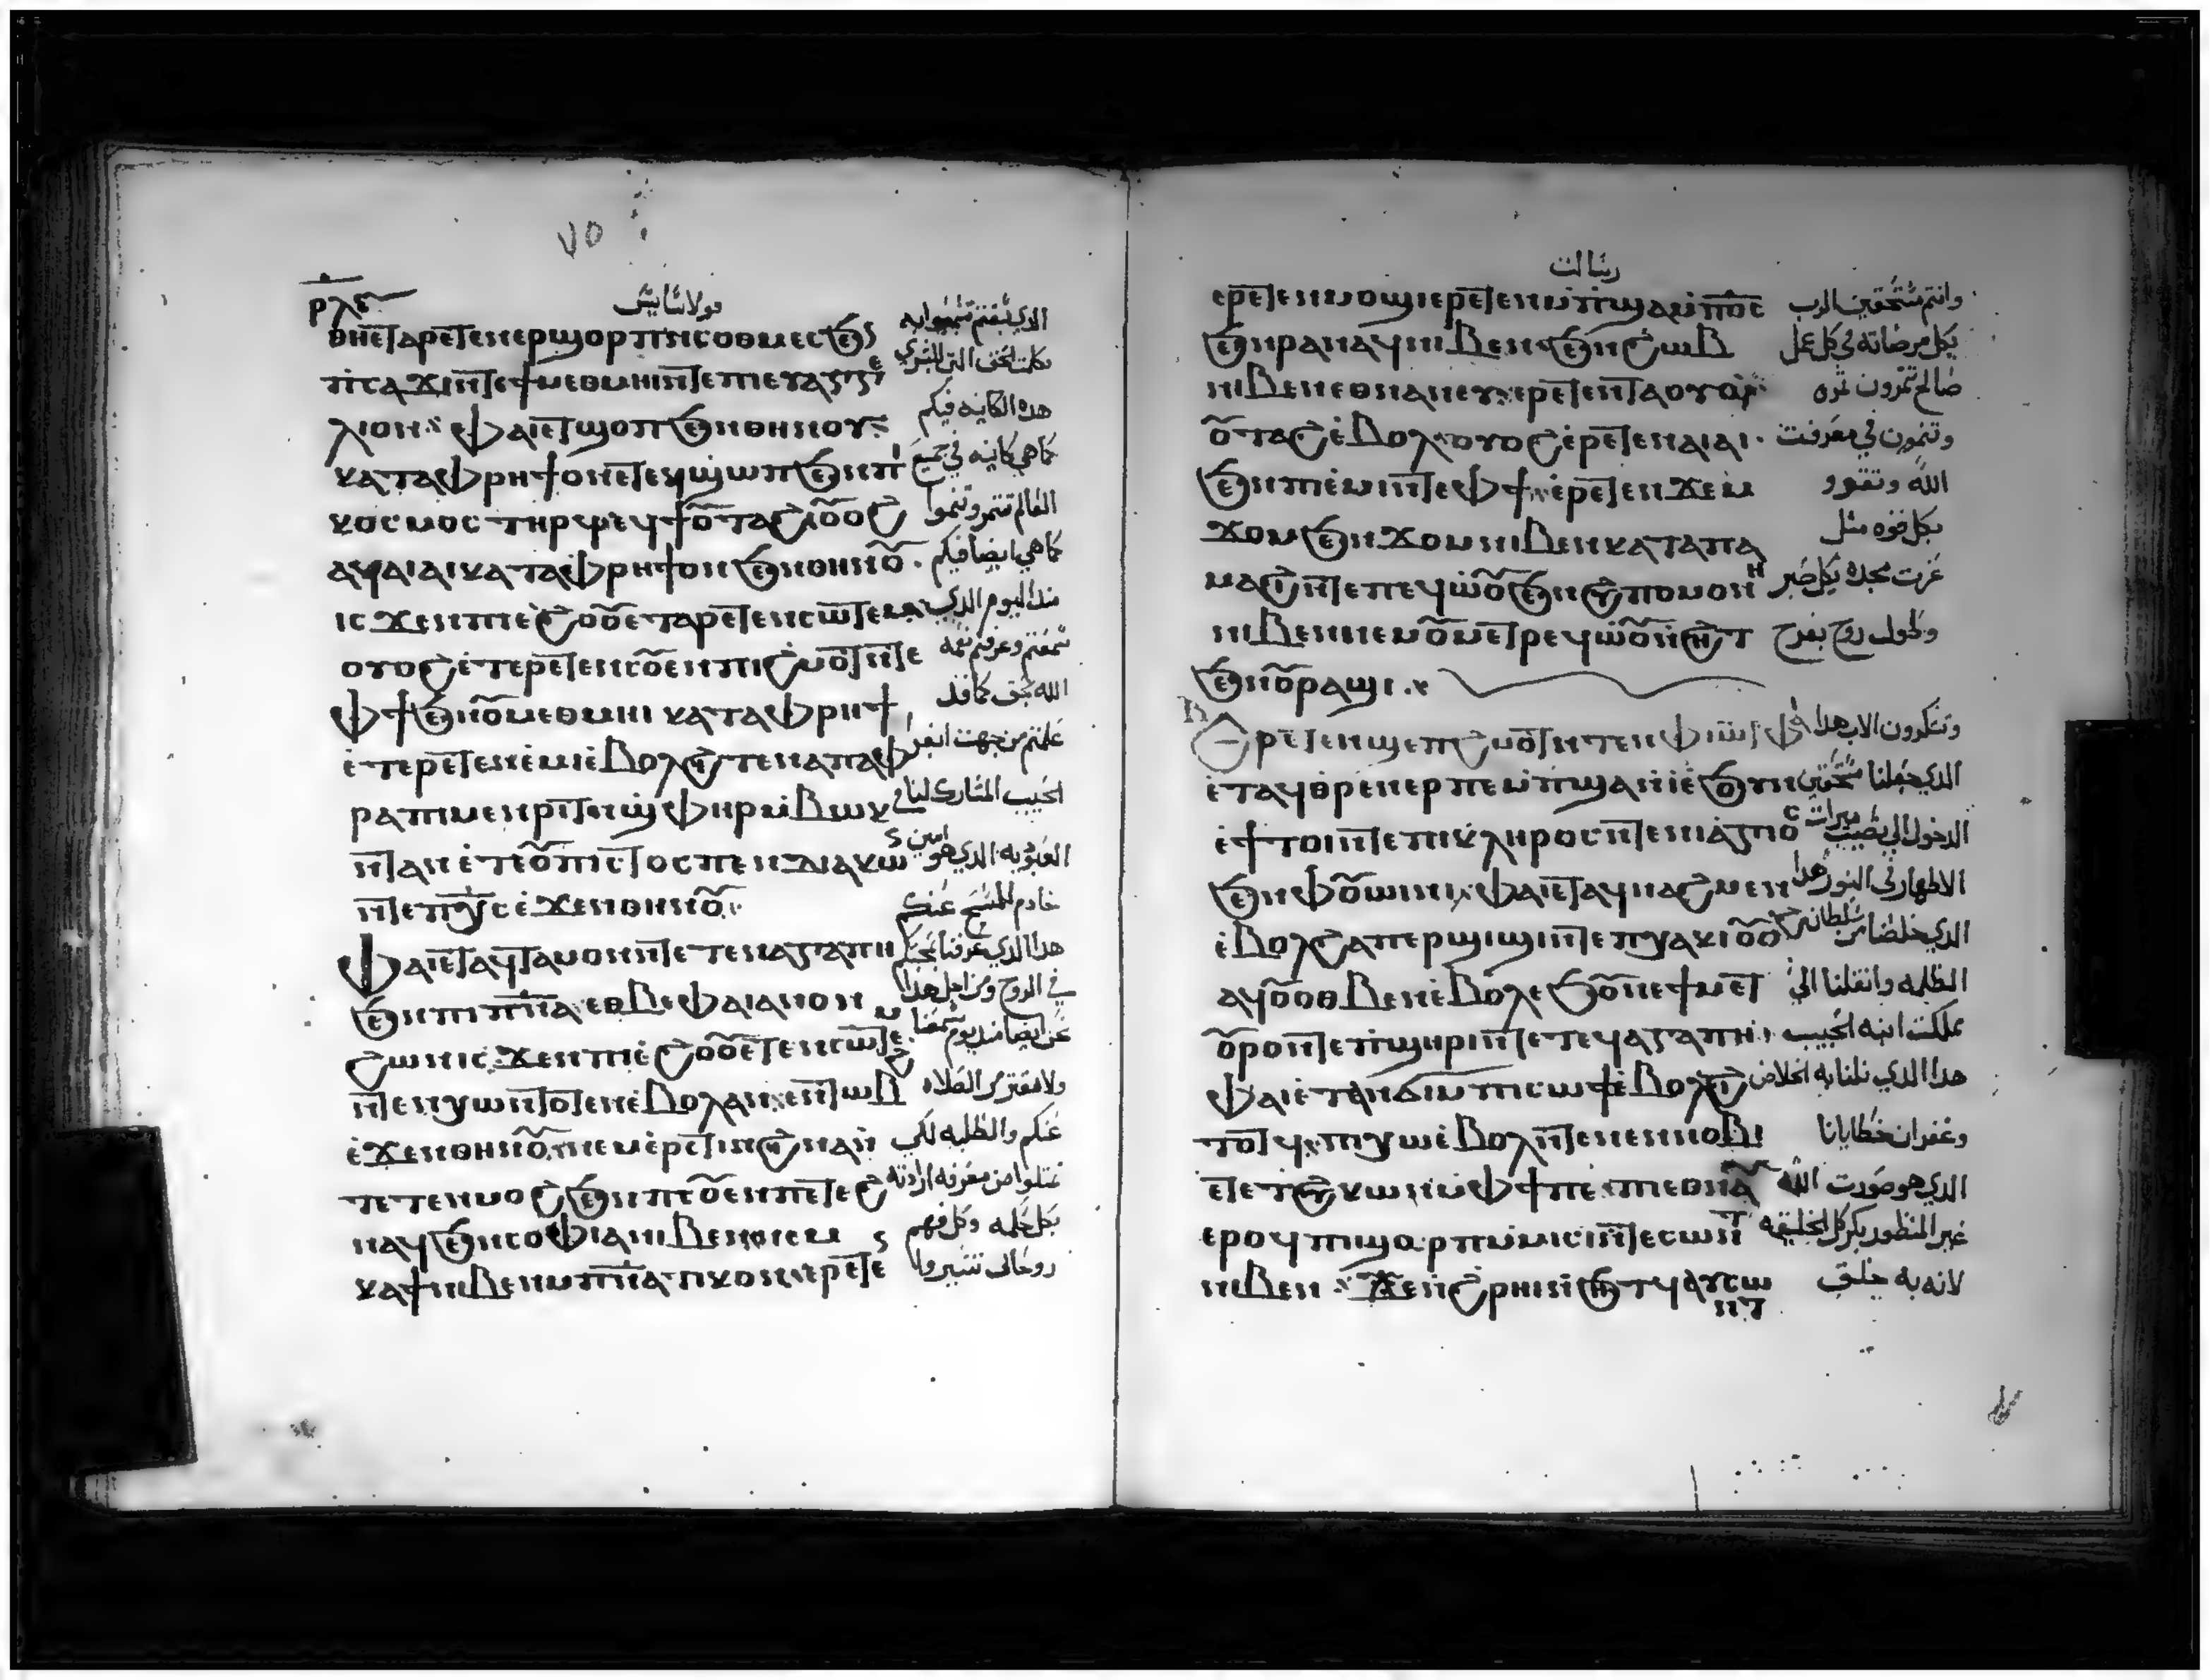 ٧٥
ⲣⲗⲉ
ⲫⲏⲉⲧⲁⲣⲉⲧⲉⲛⲉⲣϣⲟⲣⲡⲛⲥⲟⲑⲙⲉϥ ϧⲉⲛ
ⲡⲓⲥⲁϫⲓ ⲛⲧⲉ ϯⲙⲉⲑⲙⲏⲓ ⲛⲧⲉ ⲡⲓⲉⲩⲁⲅⲅⲉ
ⲗⲓⲟⲛ ⲫⲁⲓ ⲉⲧϣⲟⲡ ϧⲉⲛ ⲑⲏⲛⲟⲩ هذه الكاينه فيكم
ⲕⲁⲧⲁⲫⲣⲏϯ ⲟⲛ ⲉⲧⲉϥϣⲱⲡ ϧⲉⲛ ⲡⲓ كما هي كاينه في جميع
ⲕⲟⲥⲙⲟⲥ ⲧⲏⲣϥ ϥϯⲟⲩⲧⲁϩ ⲟⲩⲟϩ العالم تتمر وتنموا
ⲁϥⲁⲓⲁⲓ ⲕⲁⲧⲁⲫⲣⲏϯ ⲟⲛ ϧⲉⲛ ⲑⲏⲛⲟⲩ كما هي ايضا فيكم
ⲓⲥϫⲉⲛ ⲡⲓⲉϩⲟⲟⲩ ⲉⲧⲁⲣⲉⲧⲉⲛⲥⲱⲧⲉⲙ مند اليوم الدي
ⲟⲩⲟϩ ⲉⲧⲉⲣⲉⲧⲉⲛⲥⲟⲩⲉⲛ ⲡⲓϩⲙⲟⲧ ⲛⲧⲉ سمعتم وعرفتم نعمه
ⲫϯ ϧⲉⲛ ⲟⲩⲙⲉⲑⲙⲏⲓ ⲕⲁⲧⲁⲫⲣⲏϯ الله بحق كما قد
ⲉⲧⲉⲣⲉⲧⲉⲛⲉⲙⲓ ⲉⲃⲟⲗϩⲓⲧⲉⲛ ⲁⲡⲁⲫ علمتم من جهت ابفرا
ⲣⲁ ⲡⲓⲙⲉⲛⲣⲓⲧ ⲛϣⲫⲏⲣ ⲙⲃⲱⲕ الحبيب المشارك لنا في
ⲛⲧⲁⲛ ⲉⲧⲉ ⲟⲩⲡⲓⲥⲧⲟⲥ ⲡⲉ ⲛⲇⲓⲁⲕⲱ العبوديه الدي هو امين
ⲛⲧⲉ ⲡⲭⲥ ⲉϫⲉⲛ ⲑⲏⲛⲟⲩ خادم المسيح عنكم
ⲫⲁⲓ ⲉⲧⲁϥⲧⲁⲙⲟⲛ ⲛⲧⲉⲧⲉⲛⲁⲅⲁⲡⲏ هدا الدي عرفنا بحبكم
ϧⲉⲛ ⲡⲓⲡⲛⲁ ⲉⲑⲃⲉ ⲫⲁⲓ ⲁⲛⲟⲛ في الروح ومن اجل هذا
ϩⲱⲛ ⲓⲥϫⲉⲛ ⲡⲓⲉϩⲟⲟⲩ ⲉⲧⲉⲛⲥⲱⲧⲉⲙ نحن ايضا منذ يوم سمعنا
ⲛⲧⲉⲛⲭⲱ ⲛⲧⲟⲧⲉⲛ ⲉⲃⲟⲗ ⲁⲛ ⲉⲛⲧⲱⲃϩ ولا نفتر من الصلاه
ⲉϫⲉⲛ ⲑⲏⲛⲟⲩ ⲛⲉⲙ ⲉⲣⲉⲧⲓⲛ ϩⲓⲛⲁ ⲛ عنكم والطلبه لكي
ⲧⲉⲧⲉⲛⲙⲟϩ ϧⲉⲛ ⲡⲥⲟⲩⲉⲛ ⲡⲉⲧⲉϩ تمتلوا من معرفه ارادته
ⲛⲁϥ ϧⲉⲛ ⲥⲟⲫⲓⲁ ⲛⲓⲃⲉⲛ ⲛⲉⲙ بكل حكمه وكل فهم
ⲕⲁϯ ⲛⲓⲃⲉⲛ ⲙⲡⲛⲁⲧⲓⲕⲟⲛ ⲉⲣⲉⲧⲉ روحاني تسيروا
رسالت
ⲉⲣⲉⲧⲉⲛⲙⲟϣⲓ ⲉⲣⲉⲧⲉⲛⲙⲡϣⲁ ⲙⲡⲟⲥ وانتم مستحقين الرب
ϧⲉⲛ ⲣⲁⲛⲁϥ ⲛⲓⲃⲉⲛ ϧⲉⲛ ϩⲱⲃ بكل مرضاته في كل عمل
ⲛⲓⲃⲉⲛ ⲉⲑⲛⲁⲛⲉⲩ ⲉⲣⲉⲧⲉⲛⲧⲁⲟⲩⲟ صالح تتمرون تمره
ⲟⲩⲧⲁϩ ⲉⲃⲟⲗ ⲟⲩⲟϩ ⲉⲣⲉⲧⲉⲛⲁⲓⲁⲓ وتنمون في معرفت
ϧⲉⲛ ⲡⲓⲉⲙⲓ ⲛⲧⲉ ⲫϯ ⲉⲣⲉⲧⲉⲛϫⲉⲙ الله وتتقوو
ϫⲟⲙ ϧⲉⲛ ϫⲟⲙ ⲛⲓⲃⲉⲛ ⲕⲁⲧⲁ ⲡⲁ بكل قوه مثل
ⲙⲁϩⲓ ⲛⲧⲉ ⲡⲉϥⲱⲟⲩ ϧⲉⲛ ϩⲩⲡⲟⲙⲟⲛⲏ عزت مجده بكل صبر
ⲛⲓⲃⲉⲛ ⲛⲉⲙ ⲟⲩⲙⲉⲧⲣⲉϥⲱⲟⲩⲛϩⲏⲧ وطول روح بفرح
ϧⲉⲛ ⲟⲩⲣⲁϣⲓ
ⲉⲣⲉⲧⲉⲛϣⲉⲡϩⲙⲟⲧ ⲛⲧⲉⲛ ⲫⲓⲱⲧ ⲫⲏ وتشكرون الاب هدا
ⲉⲧⲁϥⲑⲣⲉⲛⲉⲣⲡⲉⲙⲡϣⲁ ⲛⲓ ⲉϧⲟⲩⲛ الدي جعلنا مستحقين
ⲉϯⲧⲟⲓ ⲛⲧⲉ ⲡⲓⲕⲗⲏⲣⲟⲥ ⲛⲧⲉ ⲛⲓⲁⲅⲓⲟⲥ الدخول الي نصيب ميرات
ϧⲉⲛ ⲫⲟⲩⲱⲓⲛⲓ ⲫⲁⲓ ⲉⲧⲁϥⲛⲁϩⲙⲉⲛ الاطهار في النور هدا
ⲉⲃⲟⲗϩⲁ ⲡⲉⲣϣⲓϣⲓ ⲛⲧⲉ ⲡⲭⲁⲕⲓ ⲟⲩⲟϩ الدي خلصنا من سلطان
ⲁϥⲟⲩⲟⲑⲃⲉⲛ ⲉⲃⲟⲗ ⲉϧⲟⲩⲛ ⲉϯⲙⲉⲧ الظلمه وانقلنا الي
ⲟⲩⲣⲟ ⲛⲧⲉ ⲡϣⲏⲣⲓ ⲛⲧⲉ ⲧⲉϥⲁⲅⲁⲡⲏ مملكت ابنه الحبيب
ⲫⲁⲓ ⲉⲧⲁⲛϭⲓ ⲙⲡⲓⲥⲱϯ ⲉⲃⲟⲗϩⲓ هدا الدي نلنا به الخلاص
ⲧⲟⲧϥ ⲡⲭⲱ ⲉⲃⲟⲗ ⲛⲧⲉ ⲛⲉⲛⲛⲟⲃⲓ وغفران خطايانا
ⲉⲧⲉ ⲧϩⲩⲕⲱⲛ ⲙⲫϯ ⲡⲉ ⲡⲓⲁⲑⲛⲁⲩ الدي هو صورت الله
ⲉⲣⲟϥ ⲡⲓϣⲟⲣⲡ ⲙⲙⲓⲥⲓ ⲛⲧⲉ ⲥⲱⲛⲧ غير المنظور بكر كل الخليقه
ⲛⲓⲃⲉⲛ ϫⲉ ⲛϩⲣⲏⲓ ⲛϧⲏⲧϥ ⲁⲩⲥⲱ لانه به خلق
ⲛⲧ